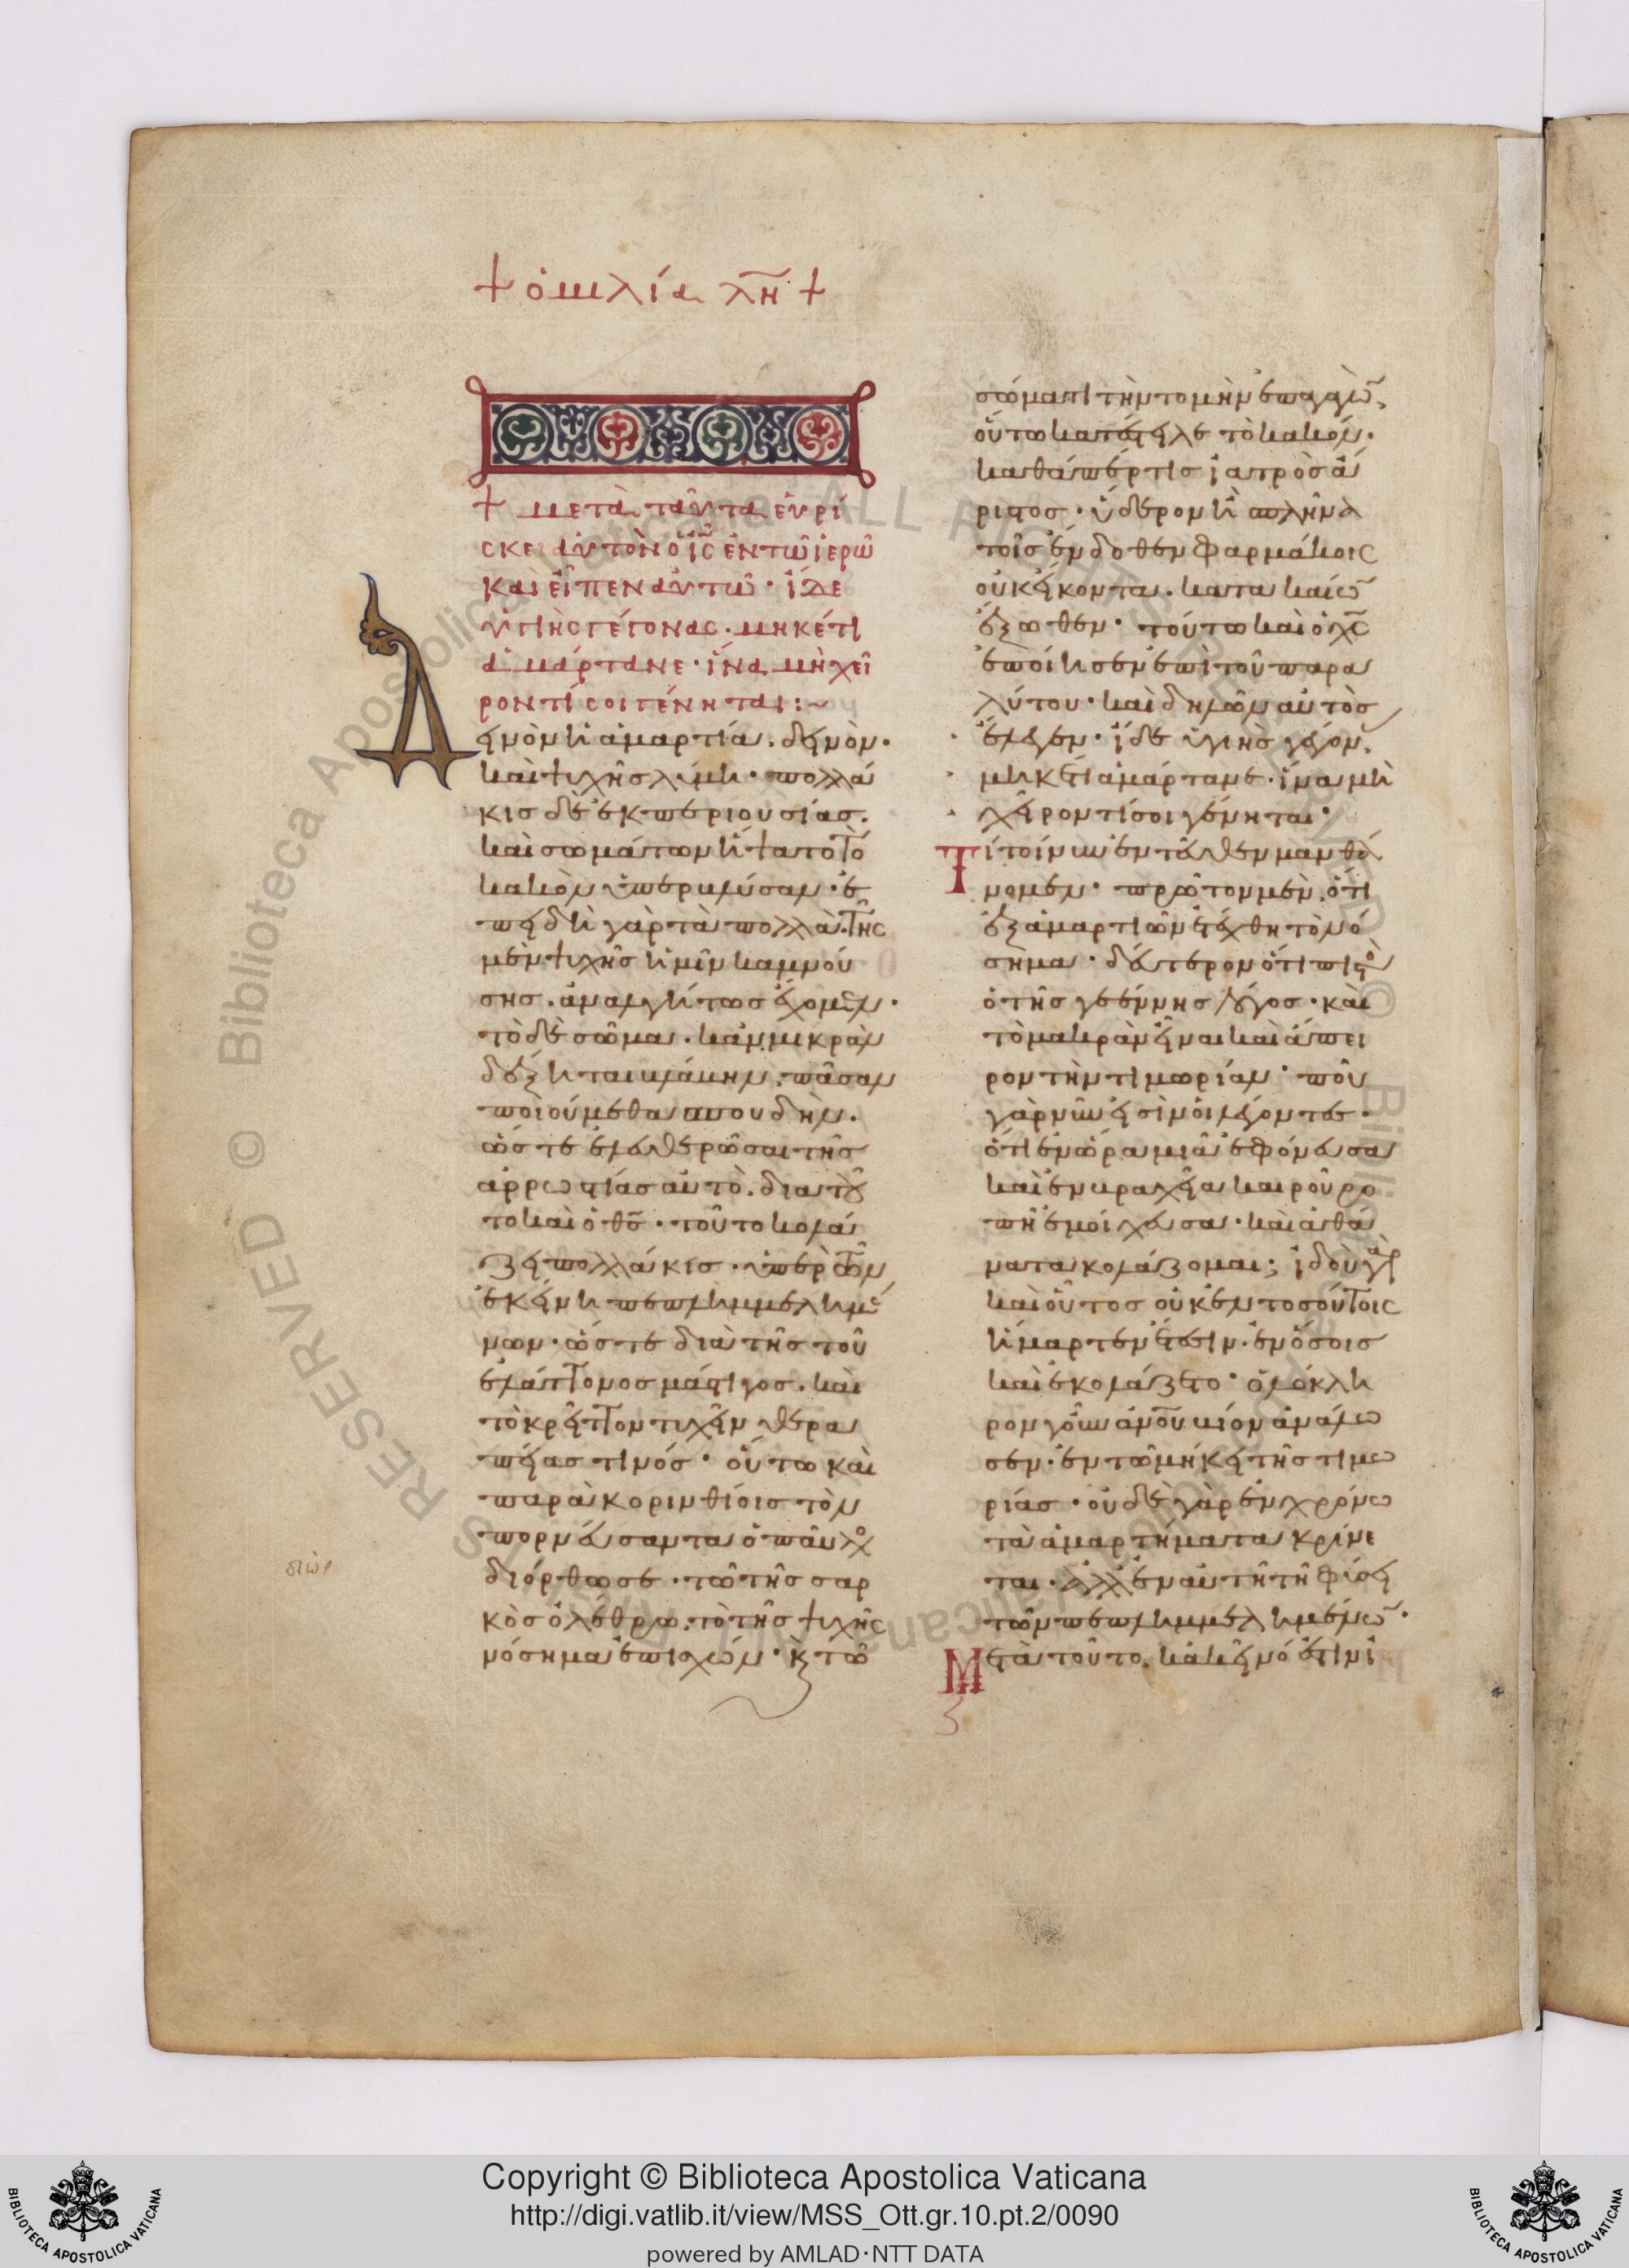 + ὁμιλία λη +
+ μετὰ ταῦτα εὑρί
σκει αὐτὸν ὁ ις ἐν τῶ ἱερῶ
καὶ εἶπεν αὐτῶ· ἴδε
ὑγιὴς γέγονας· μηκέτι
ἁμάρτανε· ἵνα μὴ χεῖ
ρόν τί σοι γένηται:~
Δεινὸν ἡ ἁμαρτία. δεινὸν·
καὶ ψυχῆς λύμη· πολλά
κις δὲ ἐκ περιουσίας.
καὶ σωμάτων ἥψατο τὸ
κακὸν ὑπερκλύσαν· ἐ
πειδὴ γὰρ τὰ πολλὰ τῆς
μὲν ψυχῆς ἡμῖν καμνού
σης. ἀναλγήτως ἔχομεν·
τὸ δὲ σῶμα. κἂν μικρὰν
δέξηται βλάβην. πᾶσαν
ποιούμεθα σπουδὴν.
ὥστε ἐλευθερῶσαι τῆς
ἀρρωστίας αὐτὸ. διὰ τοῦ
το καὶ ὁ θς· τοῦτο κολά
ζει πολλάκις· ὑπὲρ ὧν
ἐκείνη πεπλημμελημέ
νων· ὥστε διὰ τῆς τοῦ
ἐλάττονος μάστιγος. καὶ
τὸ κρεῖττον τυχεῖν θερα
πείας τινός· οὕτω καὶ
παρὰ κορινθίοις τὸν
πορνεύσαντα ὁ παῦλος
διόρθωσε· τῶ τῆς σαρ
κὸς ὀλέθρω. τὸ τῆς ψυχῆς
νόσημα ἐπισχών· κ τῶ
διώρ
σώματι τὴν τομὴν ἐπαγαγὼν,
οὕτω κατέστειλε τὸ κακόν·
καθάπερ τις ἰατρὸς ἄ
ριστος· ὕδερον ἢ σπλῆνα
τοῖς ἔνδοθεν φαρμάκοις
οὐκ εἴκοντα. κατακαίων
ἔξωθεν· τοῦτο καὶ ὁ χς
ἐποίησεν ἐπὶ τοῦ παρα
λύτου· καὶ δηλῶν αὐτὸς
ἔλεγεν· ἴδε ὑγιὴς γέγον,
μηκέτι ἁμάρτανε· ἵνα μὴ
χεῖρόν τί σοι γένηται·
Τί τοίνυν ἐντεῦθεν μανθά
νομεν· πρῶτον μὲν, ὅτι
ἐξ ἁμαρτιῶν ἐτέχθη τὸ νό
σημα· δεύτερον ὅτι πιστὸς
ὁ τῆς γεέννης λόγος· καὶ
τὸ μακρὰν εἶναι καὶ ἄπει
ρον τὴν τιμωρίαν· ποῦ
γὰρ νῦν εἰσὶν οἱ λέγοντες·
ὅτι ἐν ὥρα μιᾶ ἐφόνευσα
καὶ ἐν βραχεία καιροῦ ρο
πῆ ἐμοίχευσα· καὶ ἀθά
νατα κολάζομαι; ἰδοὺ γὰρ
καὶ οὗτος οὐκ ἐν τοσούτοις
ἥμαρτεν ἔτεσιν. ἐν ὅσοις
καὶ ἐκολάζετο· ὁλόκλη
ρον γοῦν ἀνου βίον ἀνάλω
σεν· ἐν τῶ μήκει τῆς τιμω
ρίας· οὐδὲ γὰρ ἐν χρόνω
τὰ ἁμαρτήματα κρίνε
ται· ἀλλ' ἐν αὐτῆ τῆ φύσει
τῶν πεπλημμελημένων·
Μετὰ τοῦτο, κἀκεῖνό ἐστιν ἰ
Copyright © Biblioteca Apostolica Vaticana
http://digi.vatlib.it/view/MSS_Ott.gr.10.pt.2/0090
powered by AMLAD·NTT DATA